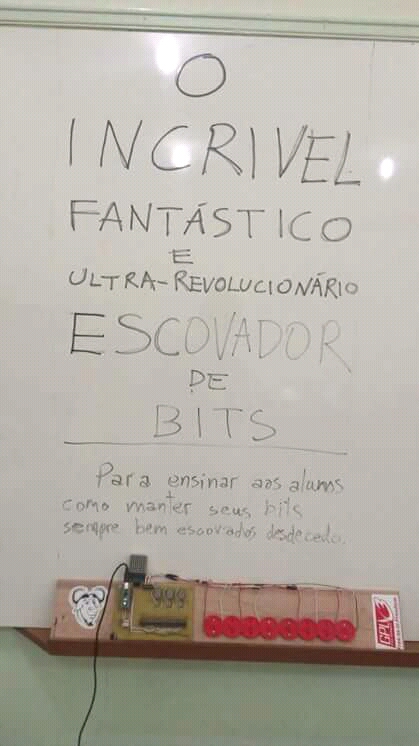 O
INCRIVEL
FANTÁSTICO
E
ULTRA-REVOLUCIONÁRIO
ESCOVADOR
DE
BITS
Para ensinar aos alunos
como manter seus bits
sempre bem escovados desde cedo.
GPL